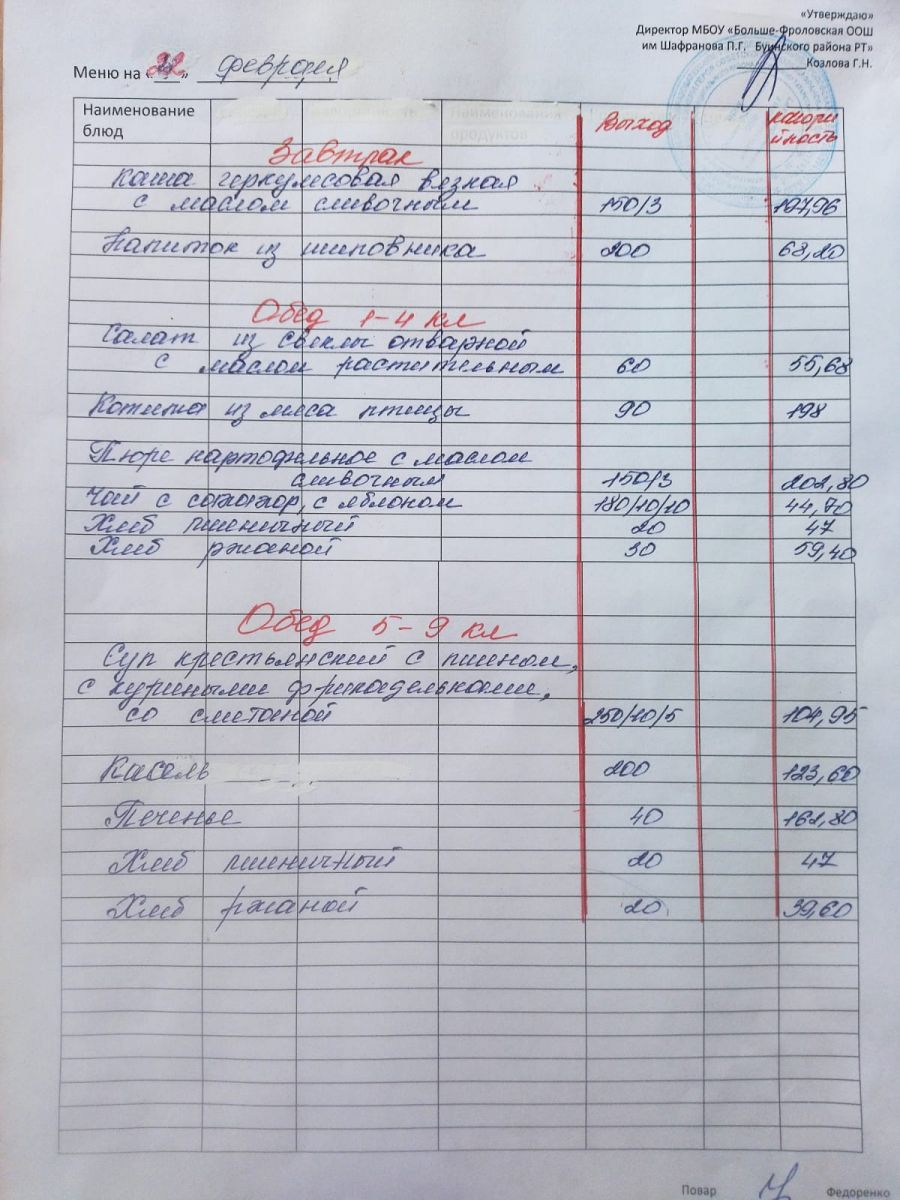 «Утверждаю»
Директор МБОУ «Больше-Фроловская ООШ
им Шафранова П.Г. Буинского района РТ»
Козлова Г.Н.
Меню на « » февраля
Наименование блюд Наименования продуктов Выход калорийность
Завтрак
Каша геркулесовая вязкая
с маслом сливочным 150/3 197,96
Напиток из шиповника 200 68,20
Обед 1-4 кл
Салат из свеклы отварной
с маслом растительным 60 55,68
Котлета из мяса птицы 90 198
Пюре картофельное с маслом
сливочным 150/3 202,80
Чай с сахаром, с яблоком 180/10/10 44,70
Хлеб пшеничный 20 47
Хлеб ржаной 30 59,40
Обед 5-9 кл
Суп крестьянский с пшеном,
с куриными фрикадельками,
со сметаной 250/10/5 104,95
Касель 200 123,60
Печенье 40 162,80
Хлеб пшеничный 20 47
Хлеб ржаной 20 39,60
Повар Федоренко